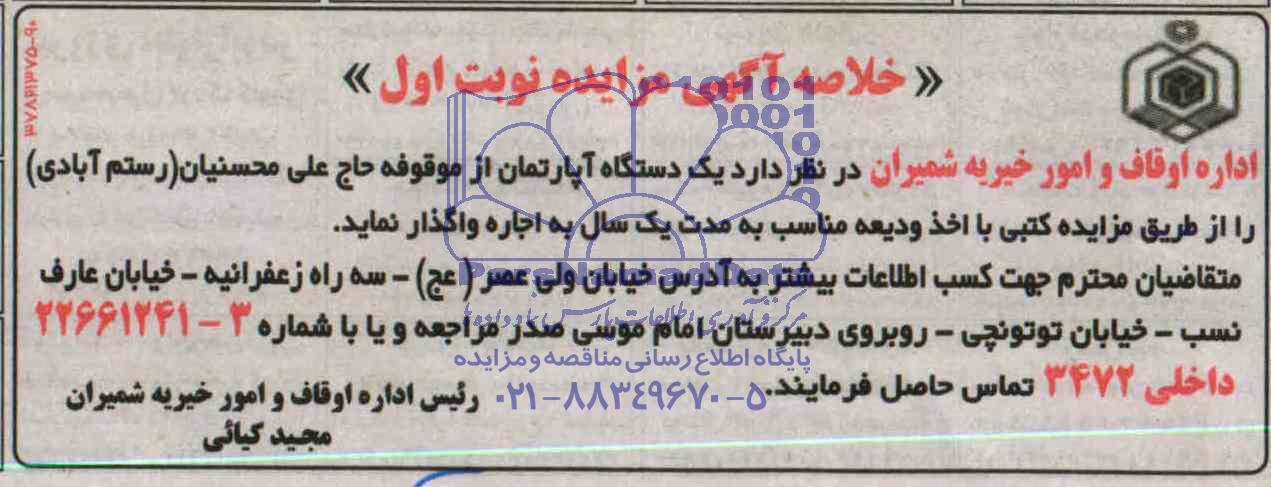 « خلاصه آگهی مزایده نوبت اول »
اداره اوقاف و امور خیریه شمیران در نظر دارد یک دستگاه آپارتمان از موقوفه حاج علی محسنیان(رستم آبادی)
را از طریق مزایده کتبی با اخذ ودیعه مناسب به مدت یک سال به اجاره واگذار نماید.
متقاضیان محترم جهت کسب اطلاعات بیشتر به آدرس خیابان ولی عصر (عج) – سه راه زعفرانیه – خیابان عارف
نسب – خیابان توتونچی – روبروی دبیرستان امام موسی صدر مراجعه و یا با شماره ۳ – ۲۲۶۶۱۲۴۱
داخلی ۳۴۷۲ تماس حاصل فرمایند.
رئیس اداره اوقاف و امور خیریه شمیران
مجید کیائی
پایگاه اطلاع رسانی مناقصه ومزایده
۰۲۱-۸۸۳۴۹۶۷۰-۵